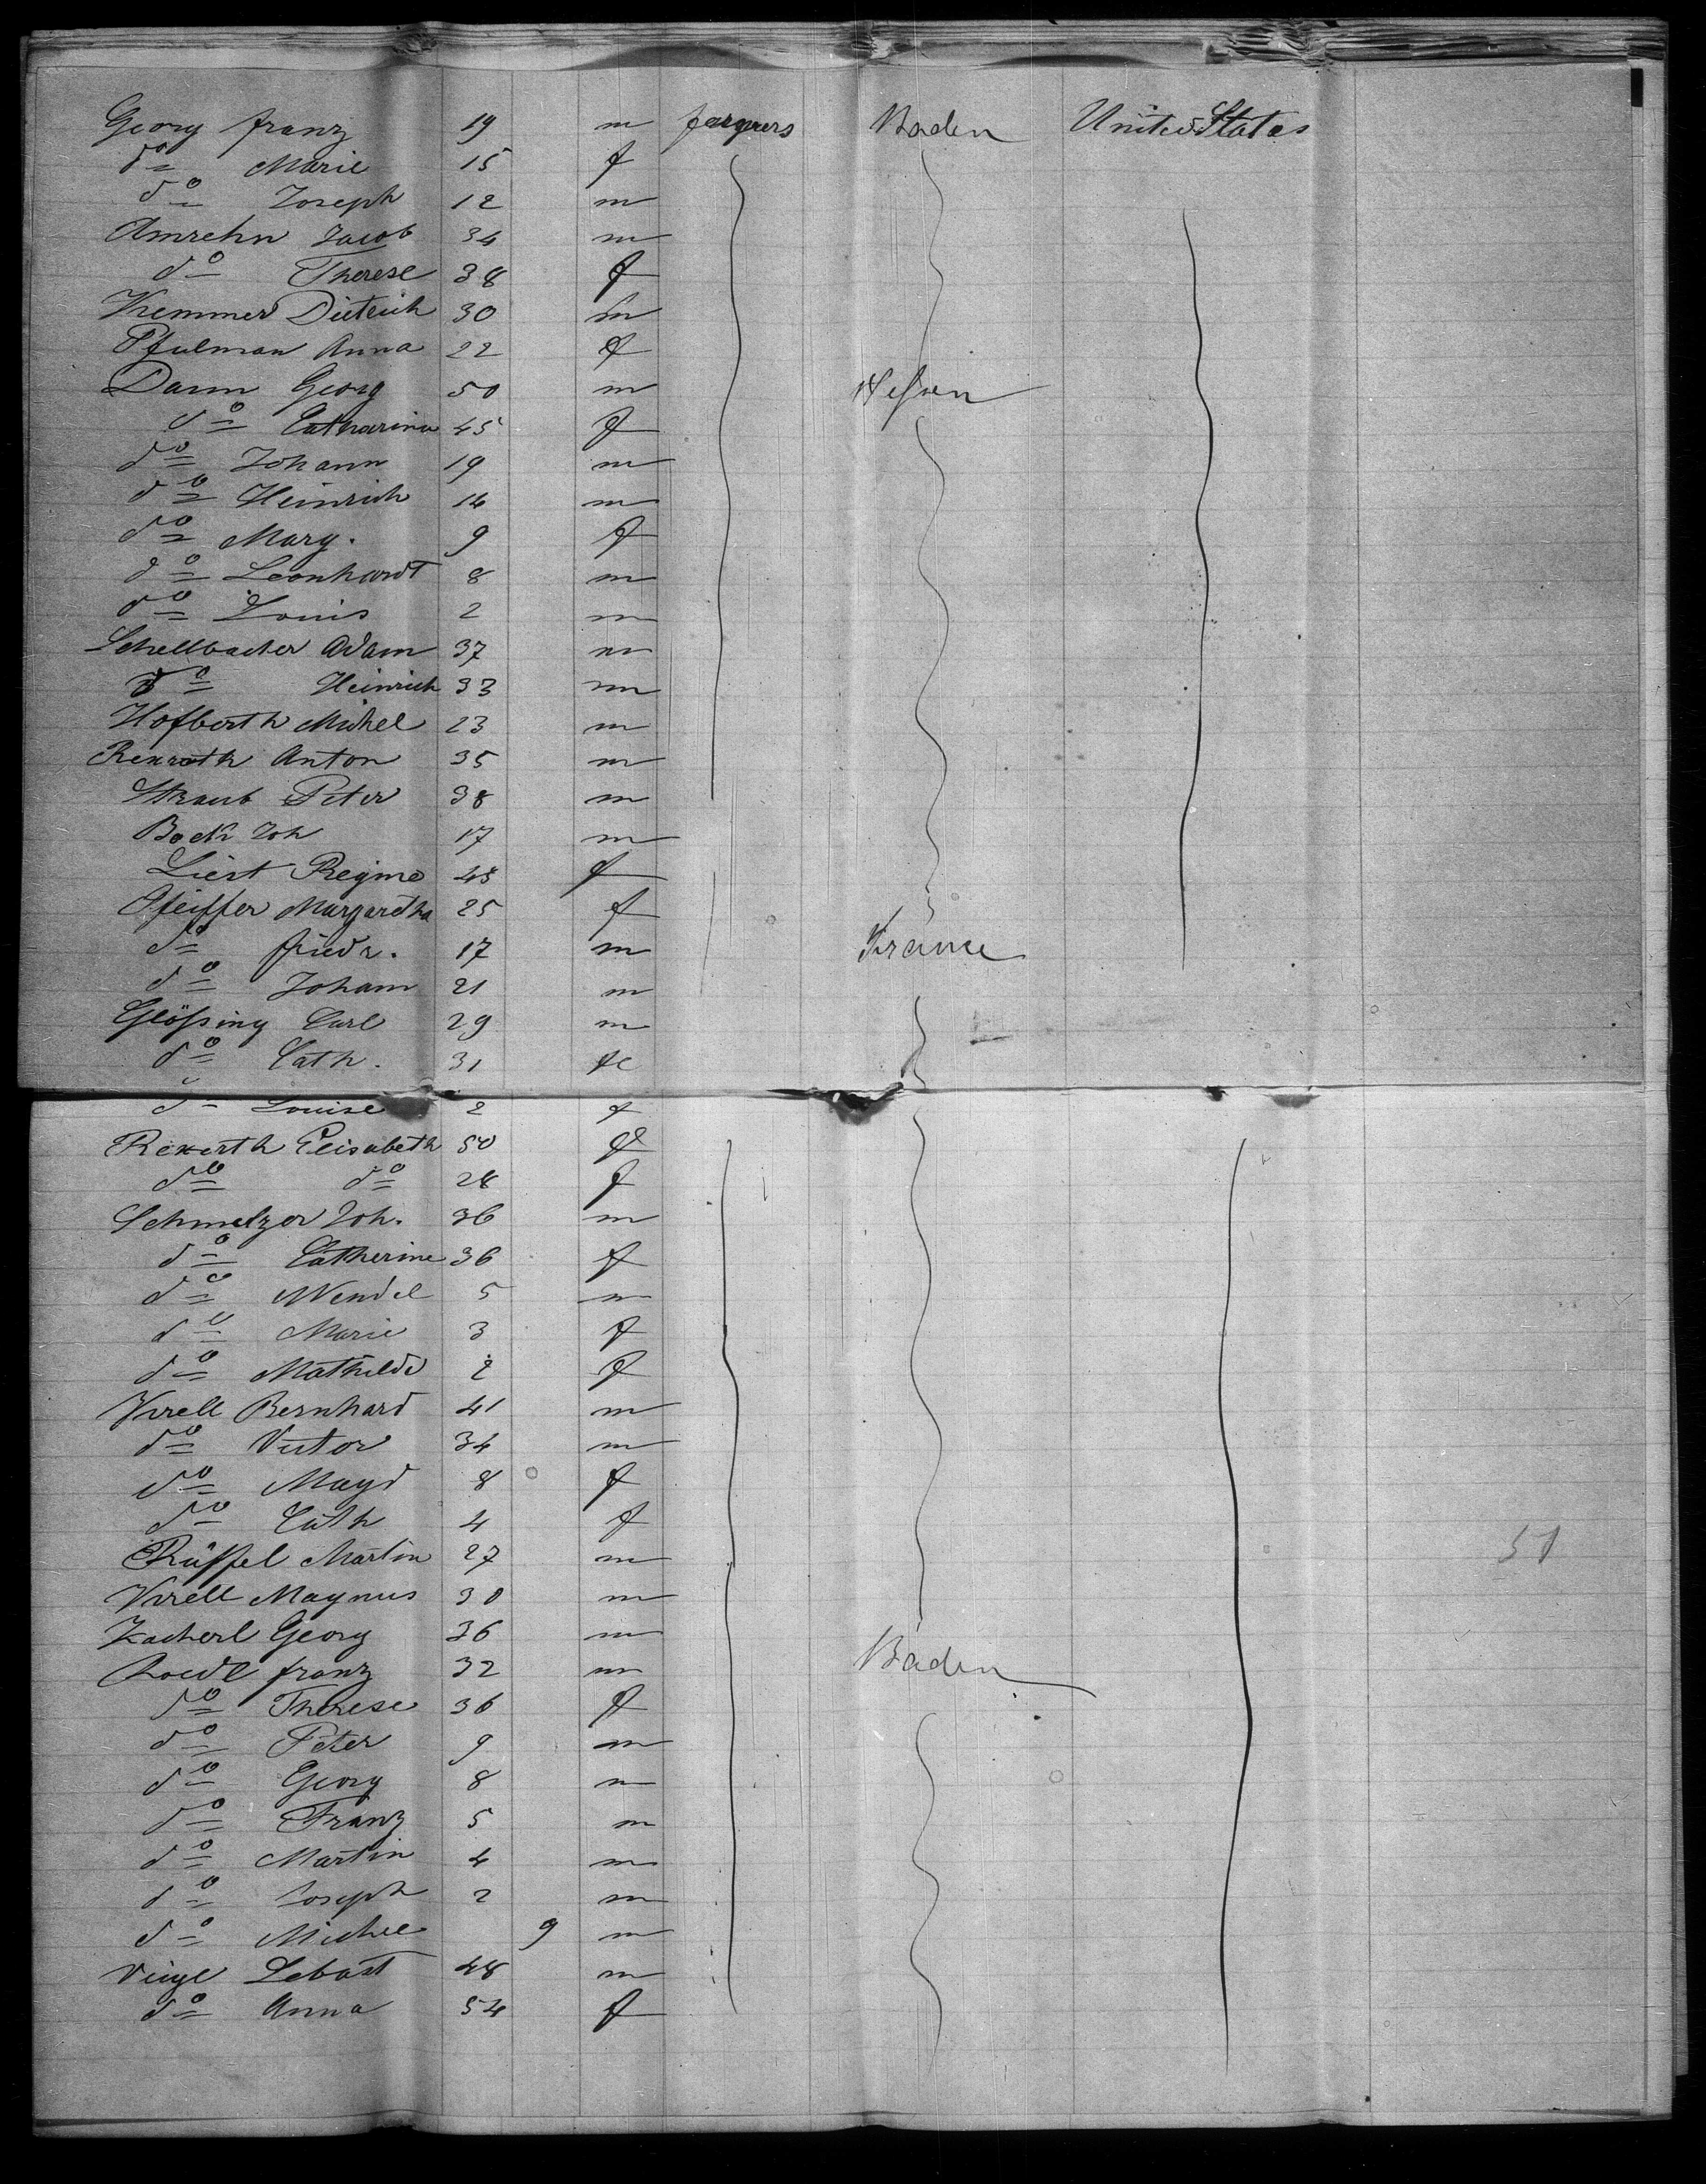 Georg franz 19 m fargmers Baden United States
do Marie 15 f
do Joseph 12 m
Amrehn Jacob 34 m
do Therese 38 f
Kemmer Dietrich 30 m
Pfulman Anna 22 f
Darm Georg 50 m Hessen
do Catharina 45 f
do Johann 19 m
do Heinrich 14 m
do Marg. 9 f
do Leonhardt 8 m
do Louis 2 m
Schellbacher Adam 37 m
do Heinrich 33 m
Hofberth Michel 23 m
Rexroth Anton 35 m
Straub Peter 38 m
Bock Joh 17 m
Liest Regine 45 f
Pfeiffer Margaretha 25 f
do friedr. 17 m France
do Johann 21 m
Glößing Carl 29 m
do Cath. 31 fe
do Louise 2 f
Rexerth Elisabeth 50 f
do do 28 f
Schmelzer Joh. 36 m
do Catherine 36 f
do Wendel 5 m
do Marie 3 f
do Mathilde 2 f
Virell Bernhard 41 m
do Victor 34 m
do Magd 8 f
do Cath 4 f
Rüffel Martin 27 m 51
Virell Magnus 30 m
Kacherl Georg 36 m
franz 32 m Baden
do Therese 36 f
do Peter 9 m
do Georg 8 m
do Franz 5 m
do Martin 4 m
do Joseph 2 m
do Michel 9 m
Veigl Sebast 48 m
do Anna 54 f